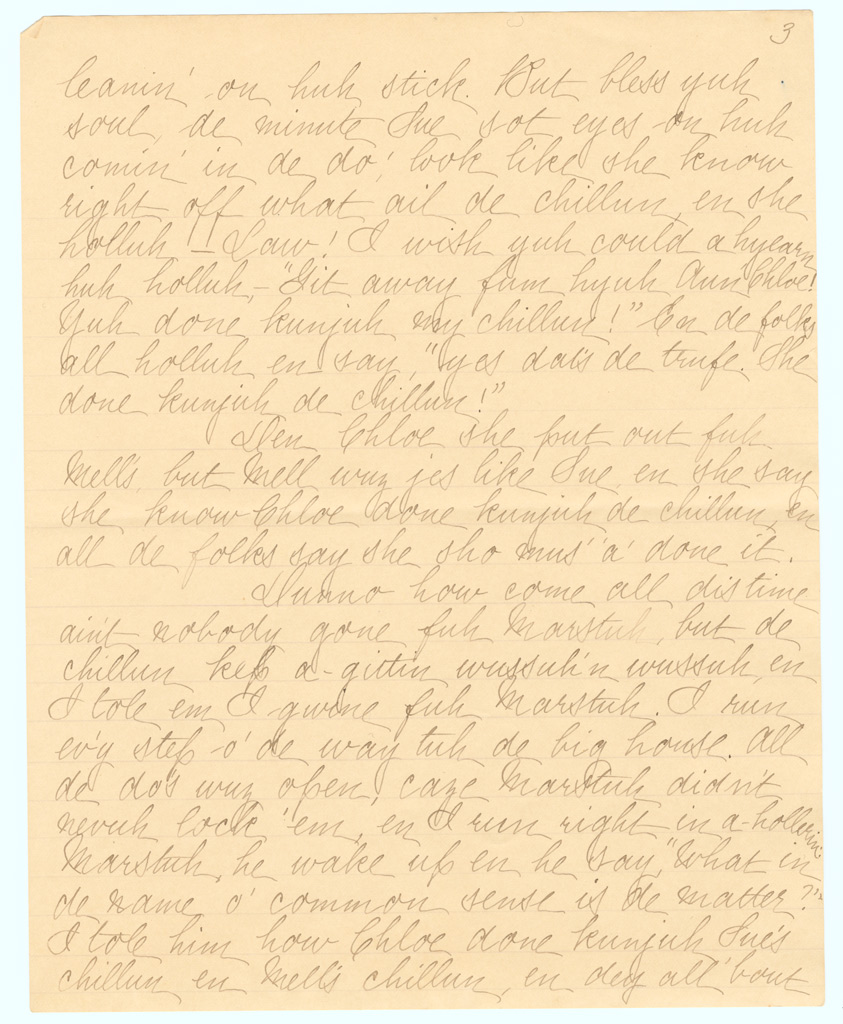 3
leanin' on huh stick. But bless yuh
soul, de minute Sue sot eyes on huh
comin' in de do', look like she know
right off what ail de chillun, en she
holluh! — Law! I wish yuh could a hyearn
huh holluh, — "Git away fum hyuh Aun' Chloe!
Yuh done kunjuh my chillun!" En de folks
all holluh en say, "yes dat's de trufe. She
done kunjuh de chillun!"
Den Chloe she put out fuh
Mell's, but Mell wuz jes like Sue, en she say
she know Chloe done kunjuh de chillun, en
all de folks say she sho mus' 'a' done it.
Dunno how come all dis time
ain't nobody gone fuh Marstuh, but de
chillun kep a-gittin wussuh'n wussuh, en
I tole em I gwine fuh Marstuh. I run
ev'y step o' de way tuh de big house. All
de do's wuz open, caze Marstuh didn't
nevuh lock 'em, en I run right in a-hollerin'
Marstuh, he wake up en he say, "What in
de name o' common sense is de matter?"
I tole him how Chloe done kunjuh Sue's
chillun en Mell's chillun, en dey all 'bout